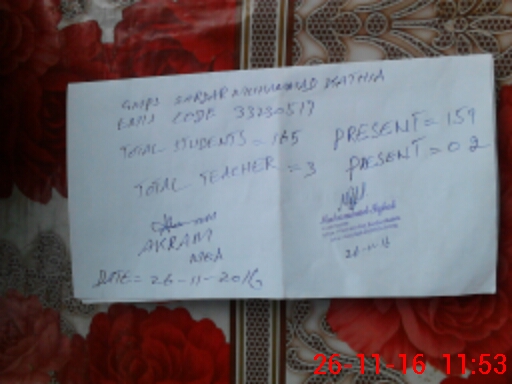 GMPS SARDAR MUHAMMAD KATHIA
EMIS CODE 33230513
TOTAL STUDENTS = 165 PRESENT = 159
TOTAL TEACHER = 3 PRESENT = 02
AKRAM
MEA
DATE = 26-11-2016
26-11-16
26-11-16 11:53